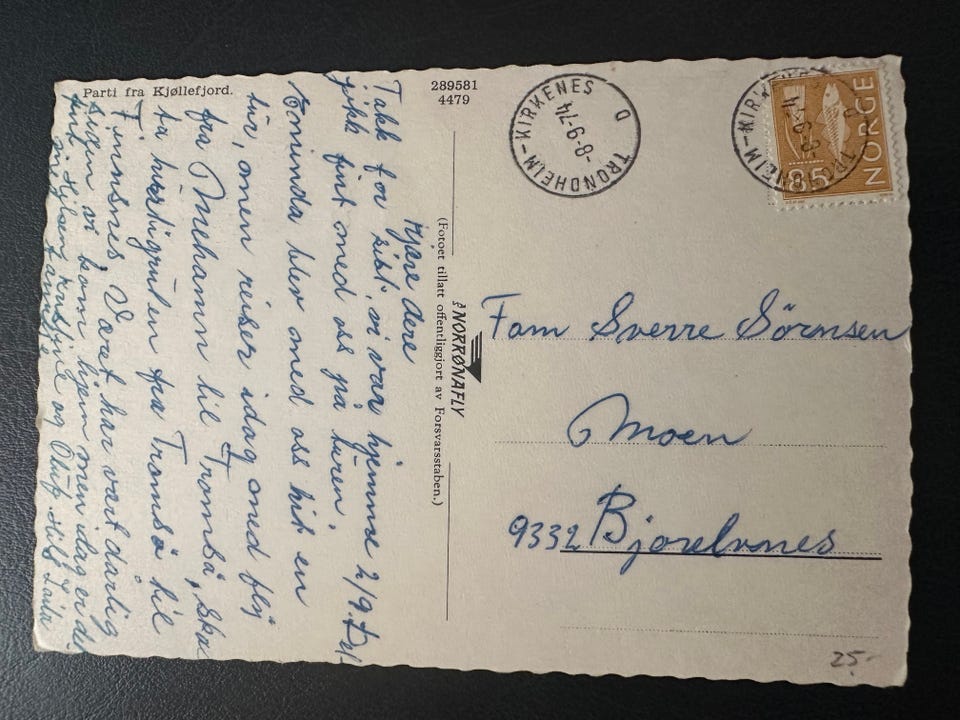 Parti fra Kjøllefjord.
289581
4479
Kjære dere
Takk for sist, vi var hjemme 2/9. Det
gikk fint med oss på turen.
Eorinda blev med oss hit en
tur, men reiser idag med fly
fra Mehamn til Tromsø, Skal
ta hurtigruten fra Tromsø til
Finnsnes. Været har vært dårlig
siden vi kom hjem men idag er de
fint. Hilsen og Oluf. Hils Laila
(Fotoet tillatt offentliggjort av Forsvarsstaben.)
A/S NORRØNAFLY
TRONDHEIM-KIRKENES D
-8-9-74
NORGE
85
Fam Sverre Sörnsen
Moen
9332 Bjorelvnes
25.-